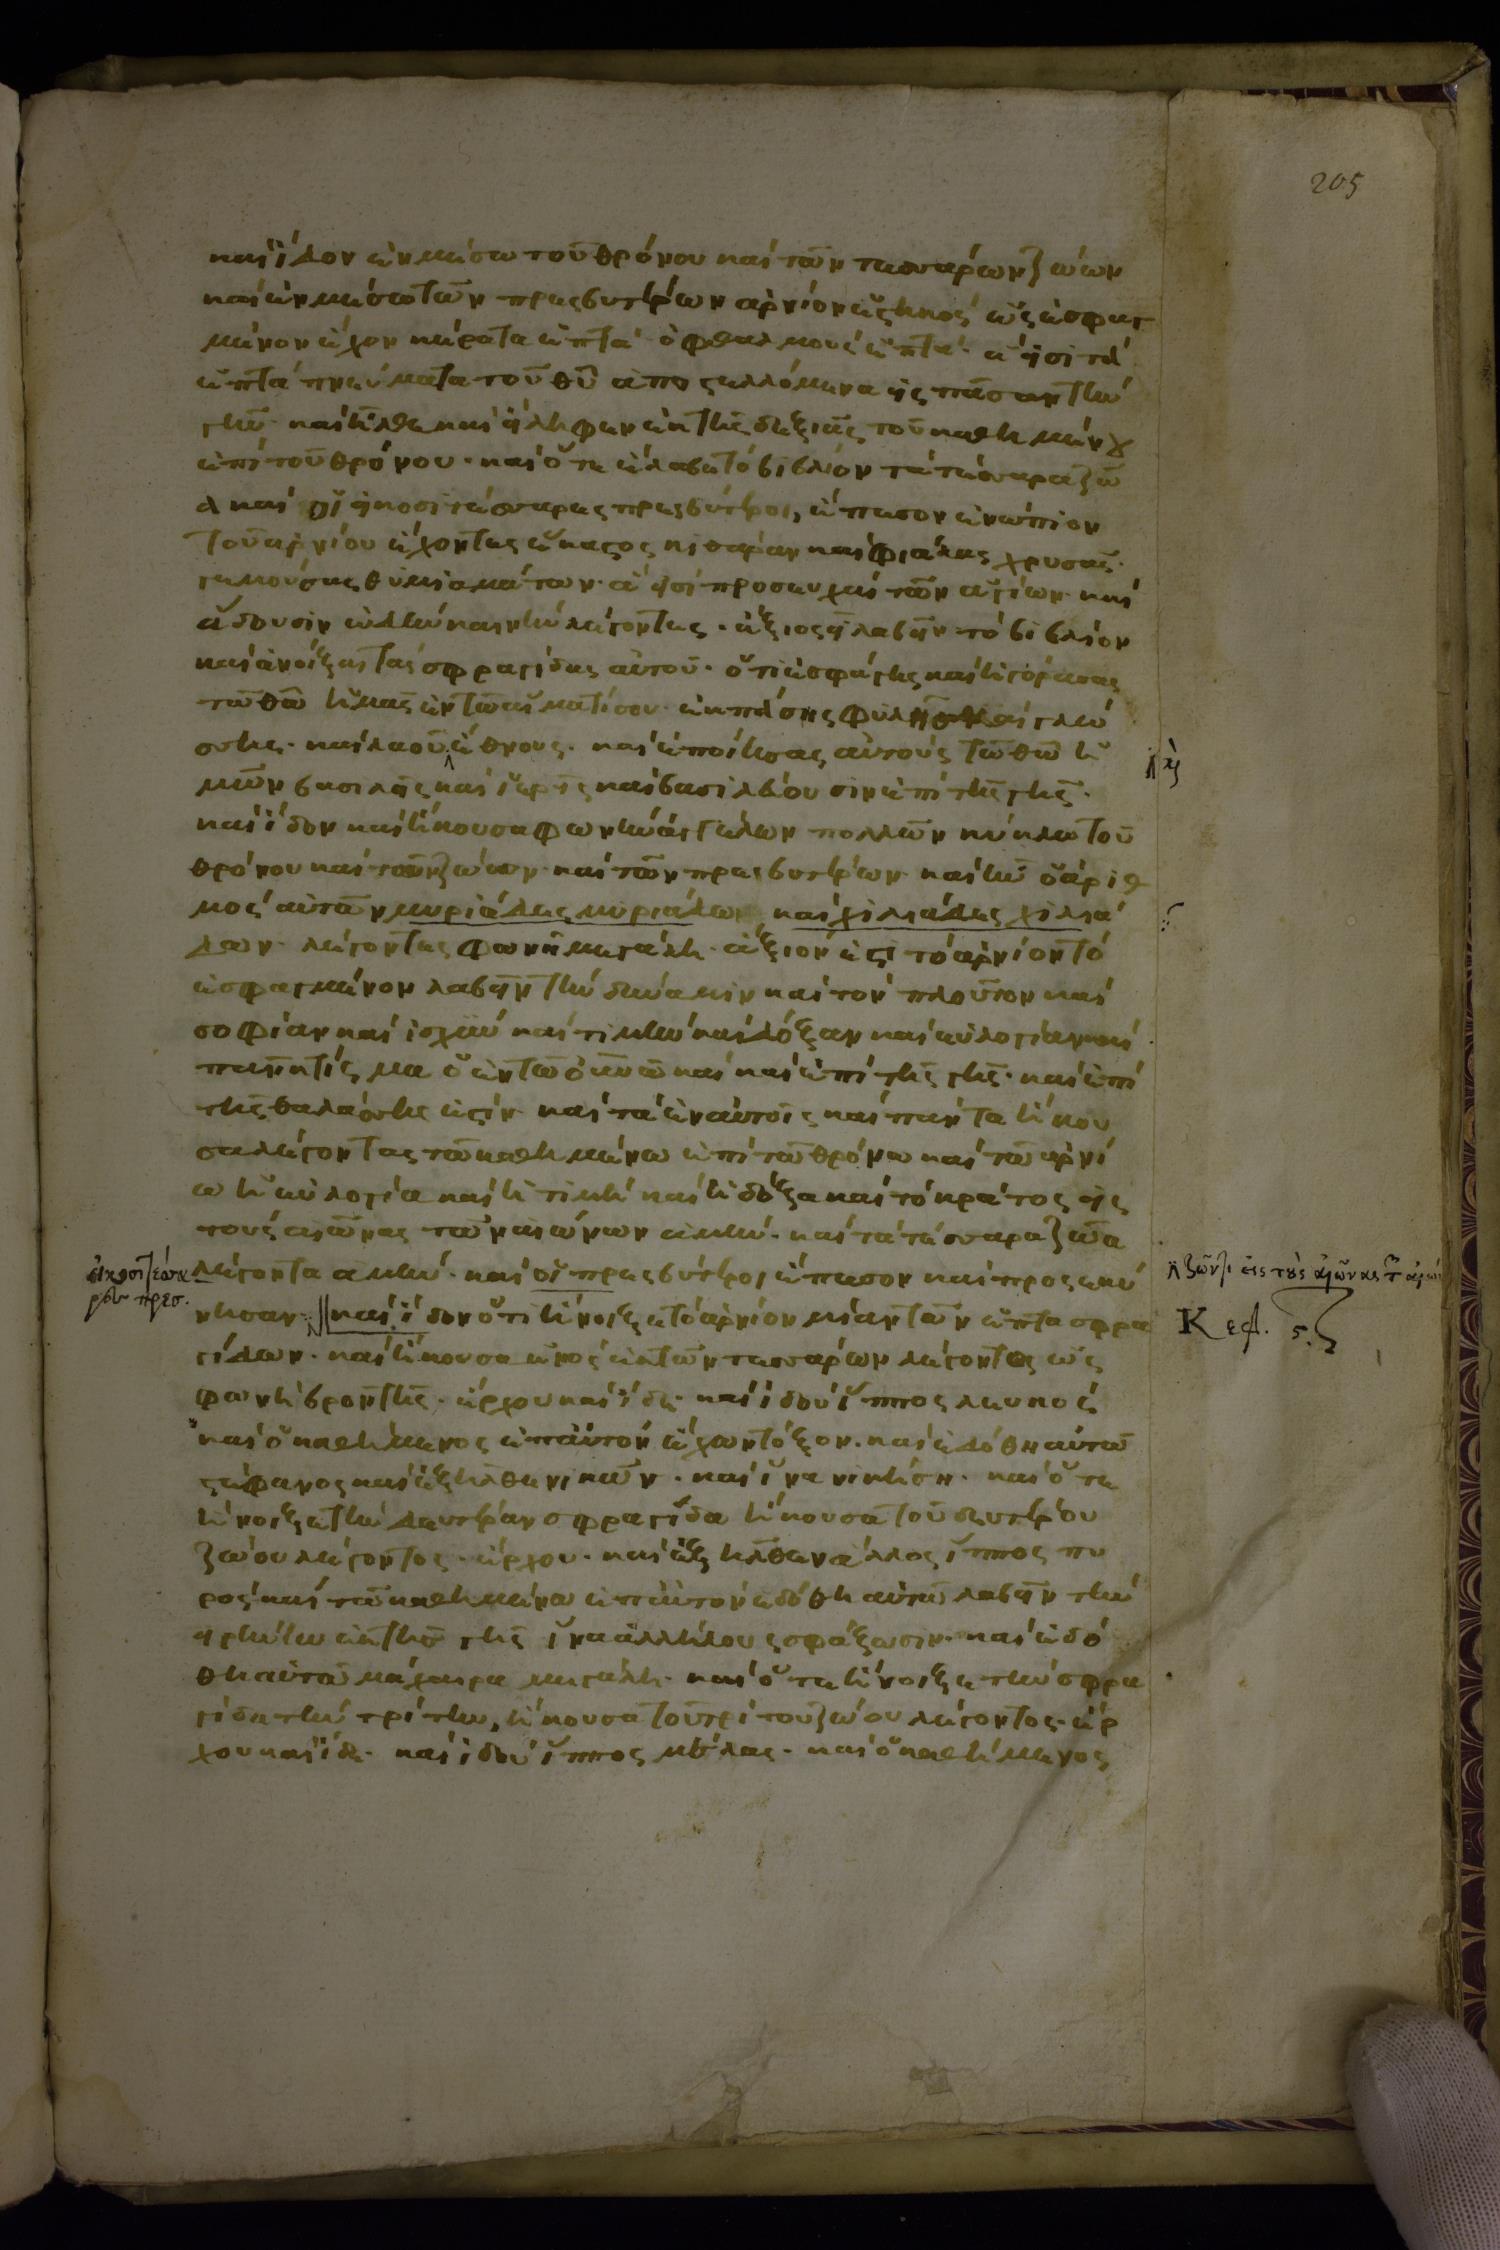 205
καὶ ἴδον ἐν μέσω τοῦ θρόνου καὶ τῶν τεσσάρων ζώων
καὶ ἐν μέσω τῶν πρεσβυτέρων ἀρνίον ἑστηκὸς ὡς ἐσφαγ
μένον ἔχον κέρατα ἑπτὰ· ὀφθαλμοὺς ἑπτὰ· ἅ εἰσι τὰ
ἑπτὰ πνεύματα τοῦ θῦ ἀποστελλόμενα εἰς πᾶσαν τὴν
γῆν· καὶ ἦλθε καὶ εἴληφεν ἐκ τῆς δεξιᾶς τοῦ καθημένου
ἐπὶ τοῦ θρόνου· καὶ ὅτε ἔλαβε τὸ βιβλίον τὰ τέσσαρα ζῶ
α καὶ οἱ εἴκοσι τέσσαρες πρεσβύτεροι, ἔπεσον ἐνώπιον
τοῦ ἀρνίου ἔχοντες ἕκαστος κιθάραν καὶ φιάλας χρυσᾶς·
γεμούσας θυμιαμάτων· ἅ εἰσι προσευχαὶ τῶν ἁγίων· καὶ
ἄδουσιν ὠδὴν καινὴν λέγοντες· ἄξιος εἶ λαβεῖν τὸ βιβλίον
καὶ ἀνοῖξαι τὰς σφραγίδας αὐτοῦ· ὅτι ἐσφάγης καὶ ἠγόρασας
τῶ θῶ ἡμᾶς ἐν τῶ αἵματί σου· ἐκ πάσης φυλῆς καὶ γλώ
σσης· καὶ λαοῦ ἔθνους· καὶ ἐποίησας αὐτοὺς τῶ θῶ ἡ
μῶν βασιλεῖς καὶ ἱερεῖς καὶ βασιλεύουσιν ἐπὶ τῆς γῆς·
καὶ ἴδον καὶ ἤκουσα φωνὴν ἀγγέλων πολλῶν κύκλω τοῦ
θρόνου καὶ τῶν ζώων· καὶ τῶν πρεσβυτέρων· καὶ ἦν ὁ ἀριθ
μὸς αὐτῶν μυριάδες μυριάδων καὶ χιλιάδες χιλιά
δων· λέγοντες φωνῆ μεγάλη· ἄξιόν ἐστι τὸ ἀρνίον τὸ
ἐσφαγμένον λαβεῖν τὴν δύναμιν καὶ τὸν πλοῦτον καὶ
σοφίαν καὶ ἰσχὺν καὶ τιμὴν καὶ δόξαν καὶ εὐλογίαν· καὶ
πᾶν κτίσμα ὃ ἐν τῶ οὐνῶ καὶ καὶ ἐπὶ τῆς γῆς· καὶ ἐπὶ
τῆς θαλάσσης ἐστίν· καὶ τὰ ἐν αὐτοῖς καὶ πάντα ἤκου
σα λέγοντας τῶ καθημένω ἐπὶ τῶ θρόνω καὶ τῶ ἀρνί
ω ἡ εὐλογία καὶ ἡ τιμὴ καὶ ἡ δόξα καὶ τὸ κράτος εἰς
τοὺς αἰῶνας τῶν αἰώνων ἀμήν· καὶ τὰ τέσσαρα ζῶα
λέγοντα ἀμήν· καὶ οἱ πρεσβύτεροι ἔπεσον καὶ προσεκύ
νησαν· καὶ ἴδον ὅτι ἤνοιξε τὸ ἀρνίον μίαν τῶν ἑπτα σφρα
γίδων· καὶ ἤκουσα ἑνὸς ἐκ τῶν τεσσάρων λέγοντος ὡς
φωνὴ βροντῆς· ἔρχου καὶ ἴδε· καὶ ἰδοὺ ἵππος λευκὸς
καὶ ὁ καθήμενος ἐπ' αὐτὸν ἔχων τόξον· καὶ ἐδόθη αὐτῶ
στέφανος καὶ ἐξῆλθε νικῶν· καὶ ἵνα νικήση· καὶ ὅτε
ἤνοιξε τὴν δευτέραν σφραγίδα ἤκουσα τοῦ δευτέρου
ζώου λέγοντος· ἔρχου· καὶ ἐξῆλθεν ἄλλος ἵππος πυ
ρὸς καὶ τῶ καθημένω ἐπ' αὐτὸν ἐδόθη αὐτῶ λαβεῖν τὴν
εἰρήνην ἐκ τῆς γῆς ἵνα ἀλλήλους σφάξωσιν· καὶ ἐδό
θη αὐτῶ μάχαιρα μεγάλη· καὶ ὅτε ἤνοιξε τὴν σφρα
γίδα τὴν τρίτην, ἤκουσα τοῦ τρίτου ζώου λέγοντος· ἔρ
χου καὶ ἴδε· καὶ ἰδοὺ ἵππος μέλας· καὶ ὁ καθήμενος
καὶ
εἰκοσιτέσσα
ρες πρεσ.
ζῶντι εἰς τοὺς αἰῶνας τῶν αἰών
Κεφ. ς.